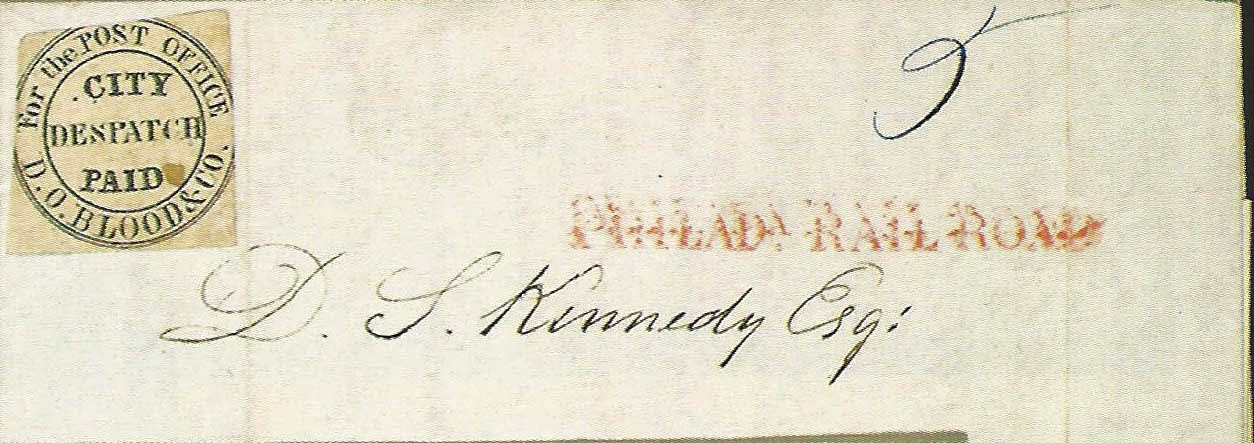 For the POST OFFICE
CITY
DESPATCH
PAID
D.O. BLOOD & CO.
5
PHILADA RAIL ROAD
D. S. Kennedy Esq: